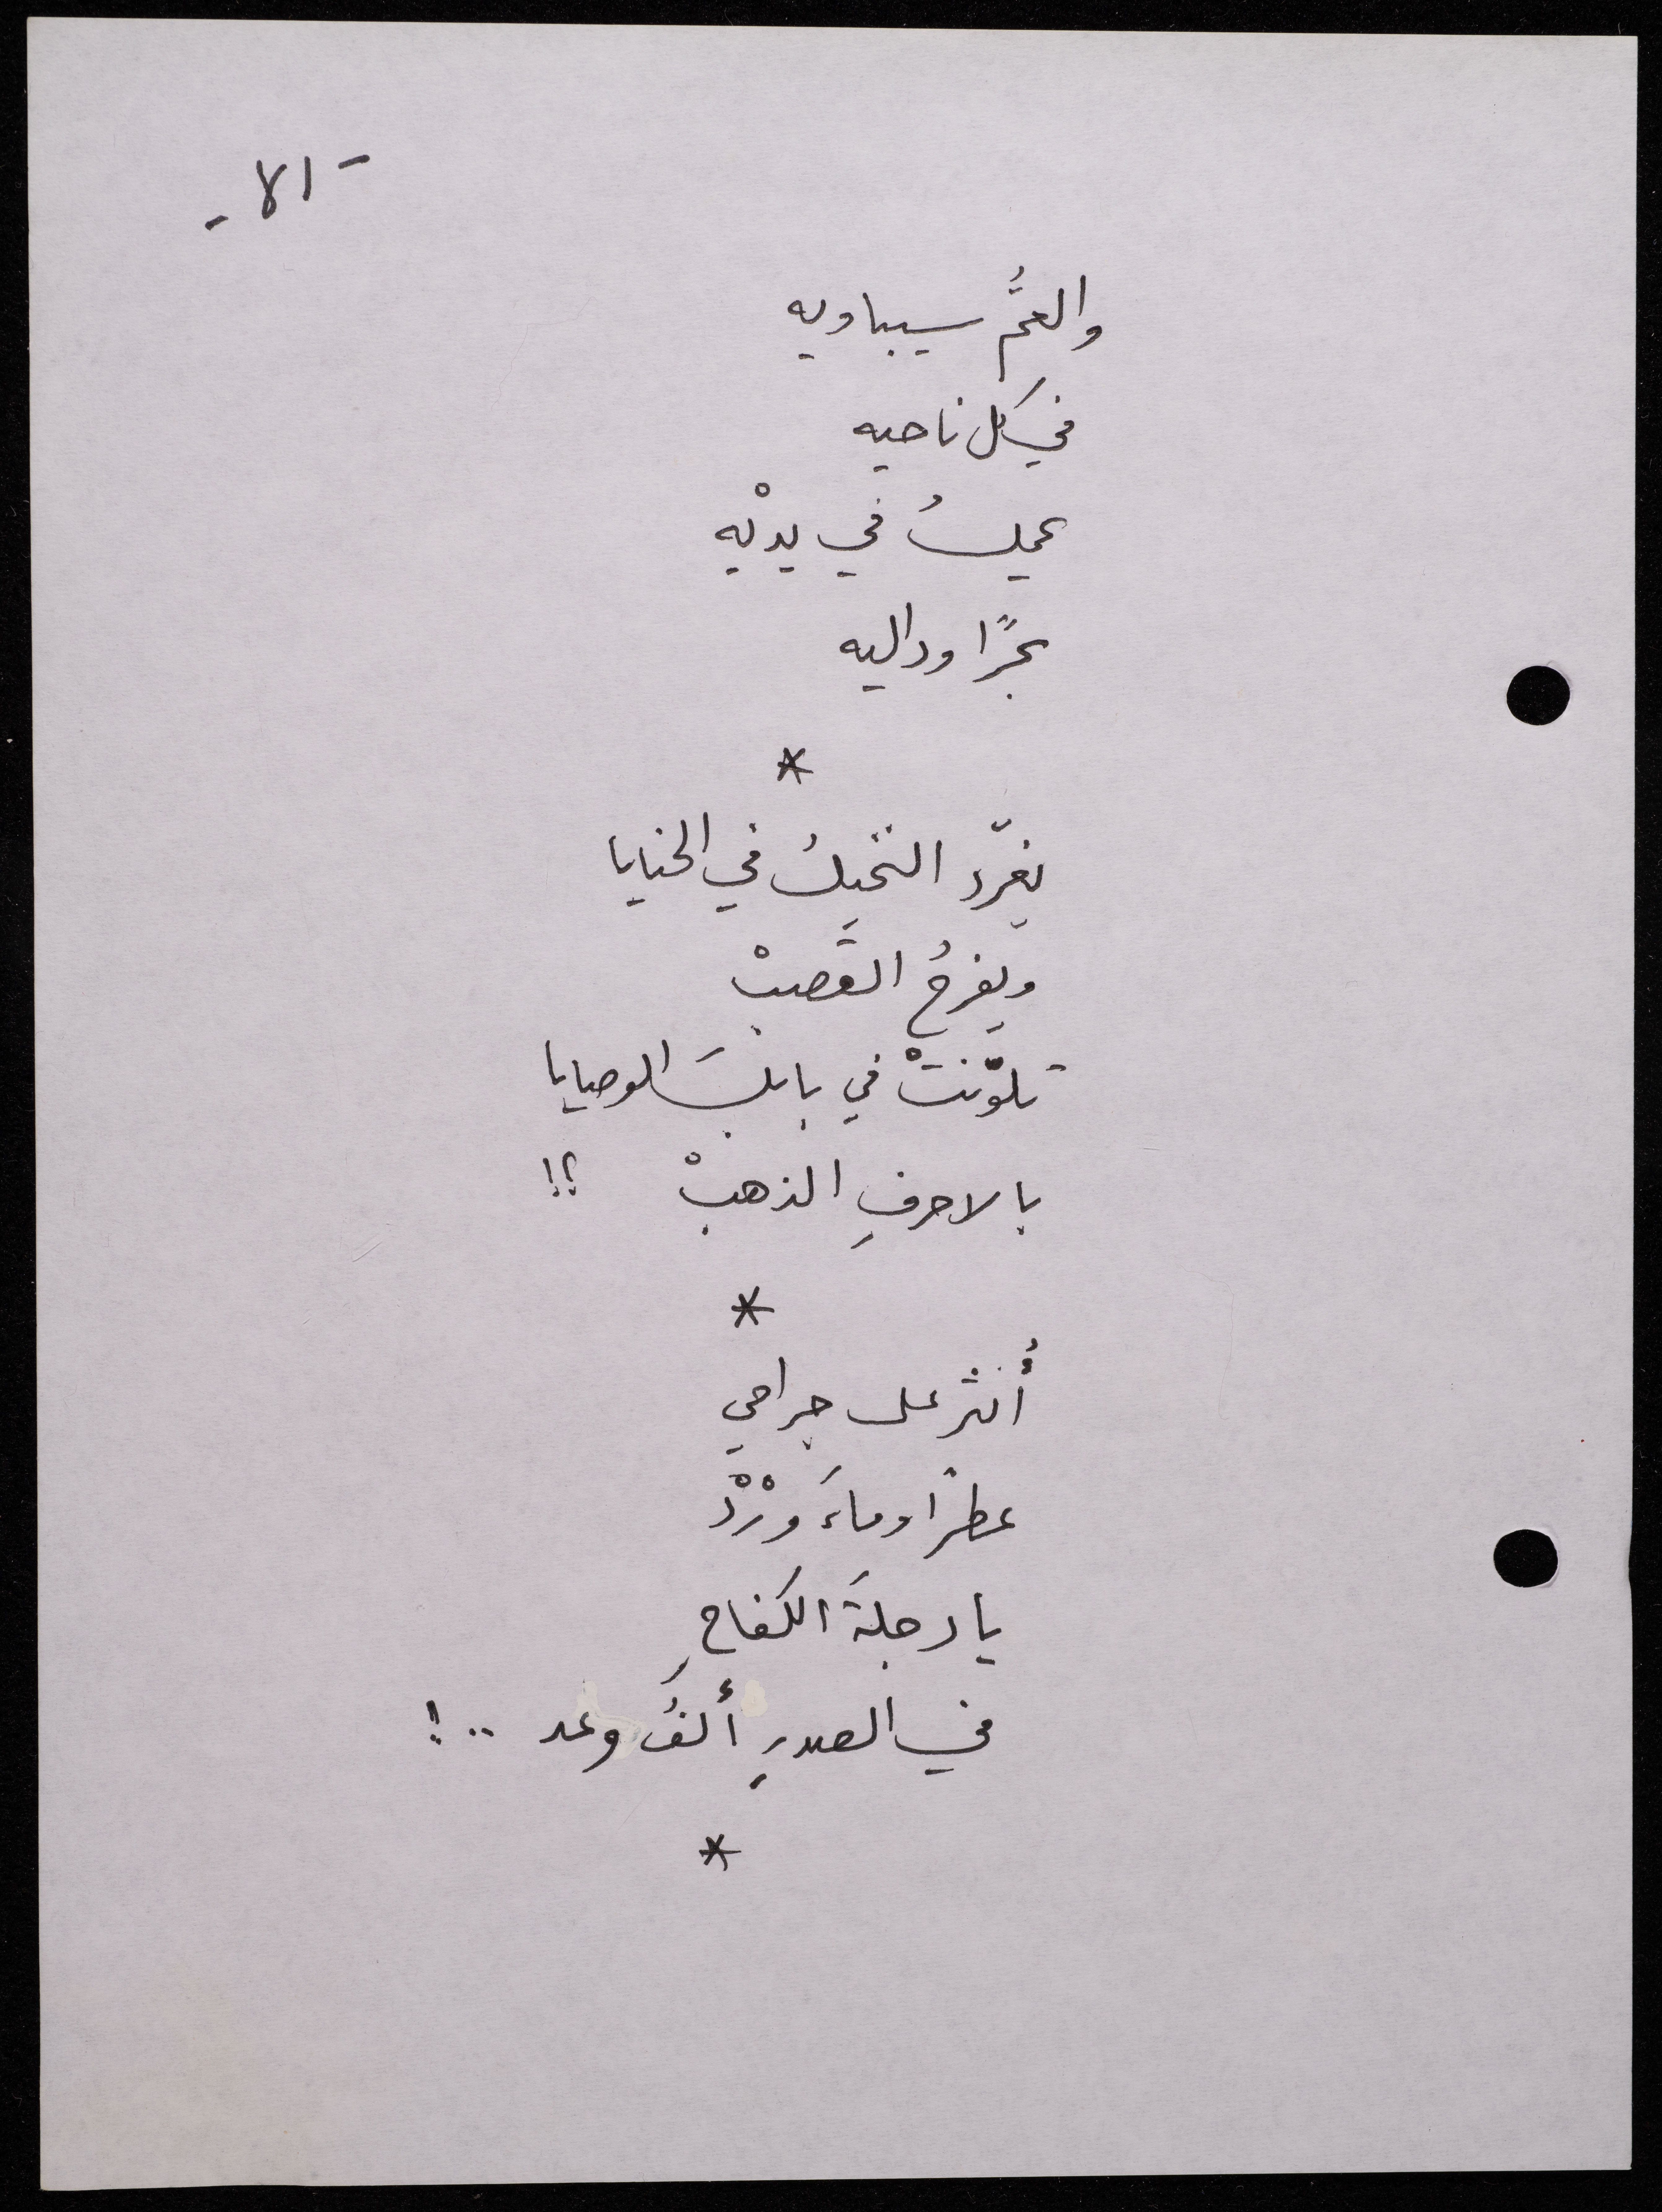 - ١٧ -
والعمُّ سيباويه
في كل ناحيه
يحملُ في يديْه
بحرًا وداليه
*
يغرّد النخيلُ في الخبايا
ويفرحُ القَصبْ
تلوّنتْ في بابلَ الوصايا
بالاحرفِ الذهبْ ؟!
*
أُنثر على جراحي
عطرًا وماءَ ورْدْ
يا دجلةَ الكفاحِ
في الصدرِ ألفُ وعد .. !
*